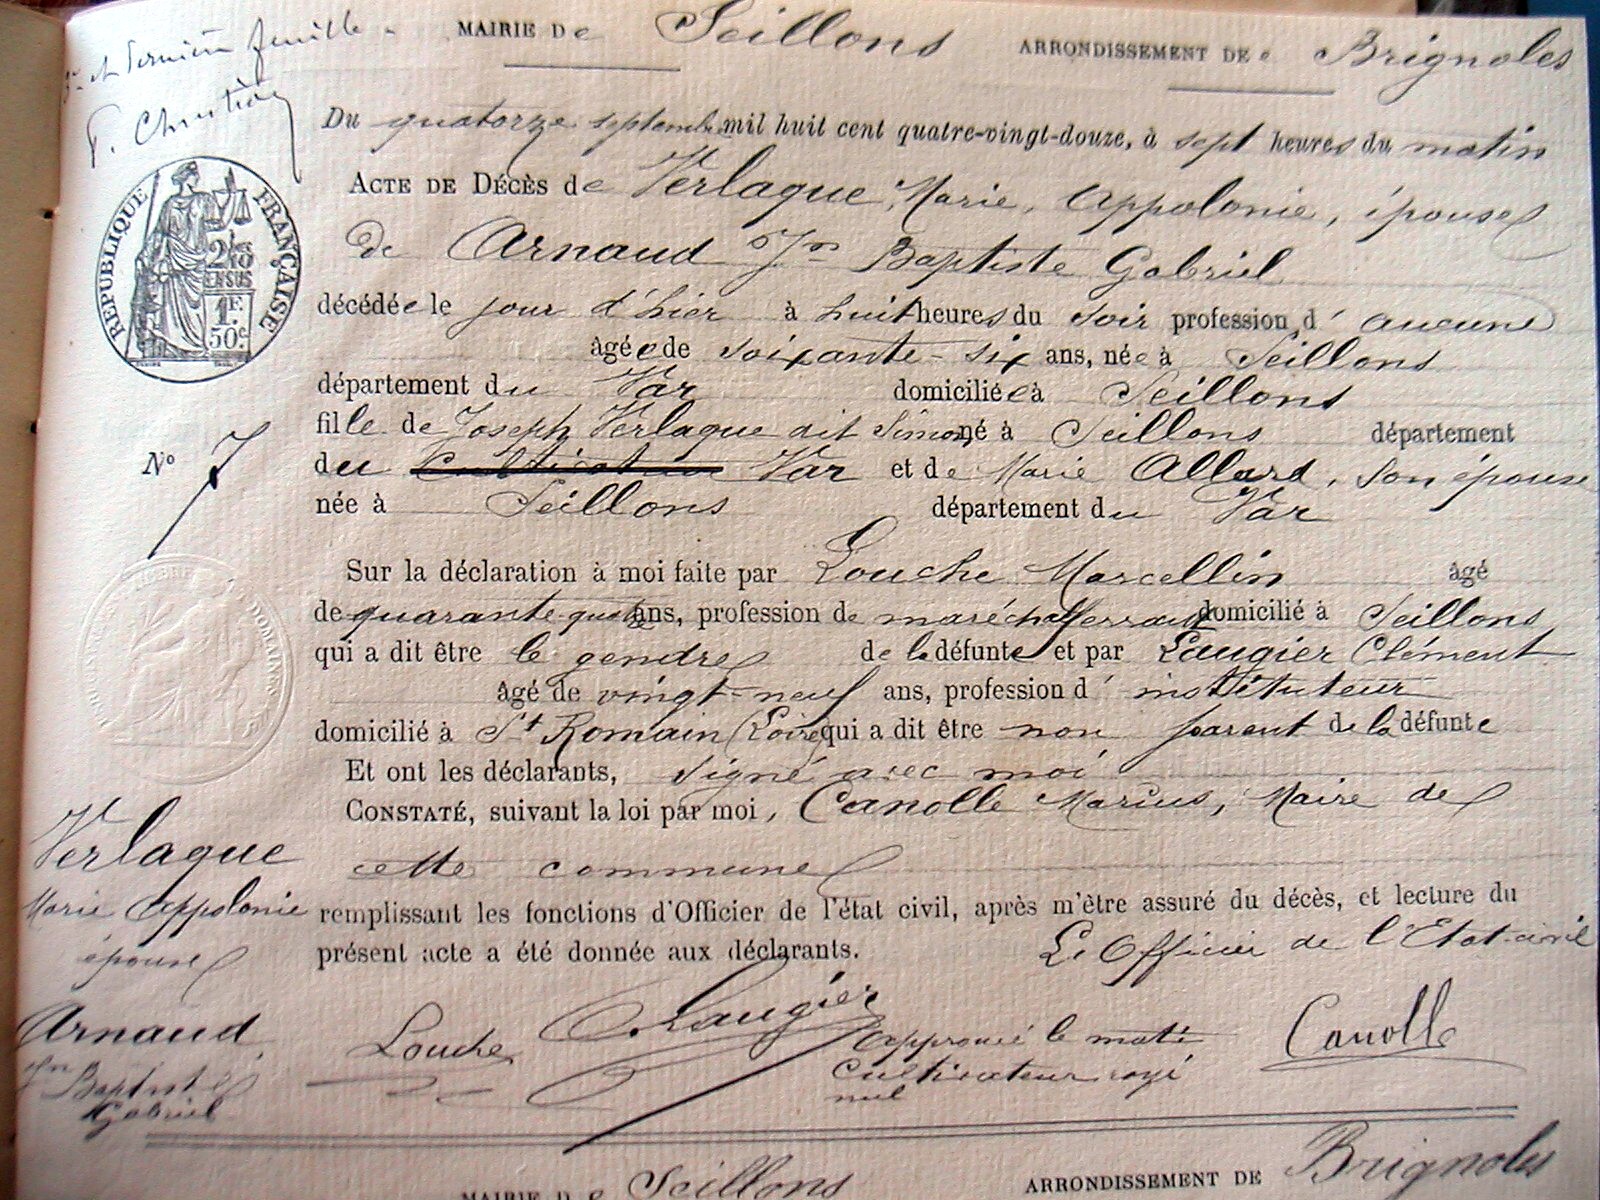 et dernière feuille
MAIRIE De Seillons ARRONDISSEMENT DE Brignoles
Du quatorze septembre mil huit cent quatre-vingt-douze, à sept heures du matin
ACTE DE DÉCÈS de Verlaque, Marie, Appolonie, épouse
de Arnaud Jn Baptiste Gabriel
décédée le jour d'hier à huit heures du soir profession d' aucune
âgée de soixante-six ans, née à Seillons
département du Var domiciliée à Seillons
fille de Joseph Verlaque dit Simon, né à Seillons département
du cultivateur Var et de Marie Allard, son épouse
née à Seillons département du Var
RÉPUBLIQUE FRANÇAISE
2/10 EN SUS
1F. 50c.
No 7
Sur la déclaration à moi faite par Louche Marcellin âgé
de quarante quatre ans, profession de maréchal ferrant domicilié à Seillons
qui a dit être le gendre de la défunte et par Laugier Clément
âgé de vingt-neuf ans, profession d' instituteur
domicilié à St Romain (Loire) qui a dit être non parent de la défunte
Et ont les déclarants, signé avec moi
CONSTATÉ, suivant la loi par moi, Canolle Marius, Maire de
cette commune
remplissant les fonctions d'Officier de l'état civil, après m'être assuré du décès, et lecture du
présent acte a été donnée aux déclarants. L'Officier de l'Etat-civil
Verlaque
Marie Appolonie
épouse
Arnaud
Jn Baptiste
Gabriel
Louche C. Laugier Approuvé le mot Canolle
cultivateur rayé
nul
MAIRIE De Seillons ARRONDISSEMENT DE Brignoles